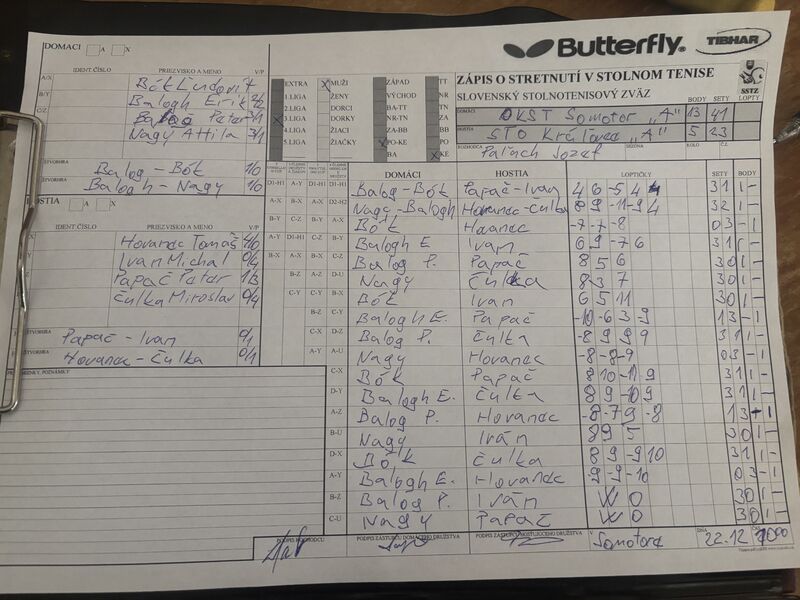 Butterfly
TIBHAR
ZÁPIS O STRETNUTÍ V STOLNOM TENISE
SLOVENSKÝ STOLNOTENISOVÝ ZVÄZ
SSTZ
BODY SETY LOPTY
DOMÁCI: OKST Somotor "A" 13 41
HOSTIA STO Kráľovce "A" 5 23
ROZHODCA Paľach Jozef SEZÓNA KOLO Č.
DOMÁCI A X
IDENT.ČÍSLO PRIEZVISKO A MENO V/P
A/X Bók Ľudovít
B/Y Balogh Erik 2/2
C/Z Balog Peter
Nagy Attila 3/1
ŠTVORHRA Balog - Bók 1/0
Balogh - Nagy 1/0
HOSTIA
IDENT.ČÍSLO PRIEZVISKO A MENO V/P
Hovanec Tomáš 4/0
Ivan Michal 0/4
Papač Peter 1/3
Čulka Miroslav 0/4
Papač - Ivan 0/1
ŠTVORHRA Hovanec - Čulka 0/1
PRIPOMIENKY, POZNÁMKY
EXTRA X MUŽI ZÁPAD TT
1.LIGA ŽENY VÝCHOD NR
2.LIGA DORCI BA-TT TN
X 3.LIGA DORKY NR-TN ZA
4.LIGA ŽIACI ZA-BB BB
5.LIGA ŽIAČKY PO-KE PO
BA X KE
DOMÁCI HOSTIA LOPTIČKY SETY BODY
D1-H1 A-Y D1-H1 D1-H1 Balog - Bók Papač - Ivan 4 6 -5 4 31 1-
A-X B-X A-X D2-H2 Nagy - Balogh Hovanec - Čulka 8 9 -11 -9 4 32 1-
B-Y C-Z B-Y A-X Bók Hovanec -7 -7 -8 03 -1
A-Y D1-H1 C-Z B-Y Balogh E Ivan 6 9 -7 6 31 1-
B-X A-X B-X C-Z Balog P. Papač 8 5 6 30 1-
B-Z A-Z D-U Nagy Čulka 8 3 7 30 1-
C-Y C-Y B-X Bók Ivan 6 5 11 30 1-
B-Z C-Y Balogh E. Papač -10 -6 3 -9 13 -1
C-X D-Z Balog P. Čulka -8 9 9 9 31 1-
A-Y A-U Nagy Hovanec -8 -8 -9 03 -1
C-X Bók Papač 8 10 -11 9 31 1-
D-Y Balogh E. Čulka 8 9 -10 9 31 1-
A-Z Balog P. Hovanec -8 -7 9 -8 13 -1
B-U Nagy Iván 8 9 5 30 1-
D-X Bók Čulka 8 9 -9 10 31 1-
A-Y Balogh E. Hovanec -9 -10 03 -1
B-Z Balog P. Iván W O 30 1-
C-U Nagy Papač W O 30 1-
PODPIS ROZHODCU PODPIS ZÁSTUPCU DOMÁCEHO DRUŽSTVA PODPIS ZÁSTUPCU HOSŤUJÚCEHO DRUŽSTVA V Somotore DŇA 22.12 ČAS